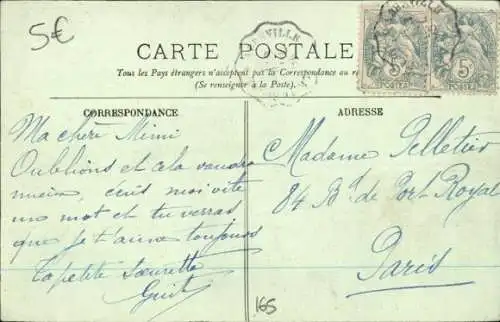 5€
CARTE POSTALE
Tous les Pays étrangers n'acceptent pas la Correspondance au
(Se renseigner à la Poste).
CORRESPONDANCE
Ma chère Mimi
Oublions et cela vaudra
mieux, écris moi vite
un mot et tu verras
que je t'aime toujours
Ta petite sœurette
ADRESSE
Madame Pelletier
84 Bd de Port Royal
Paris
5
POSTES
5
POSTES
165